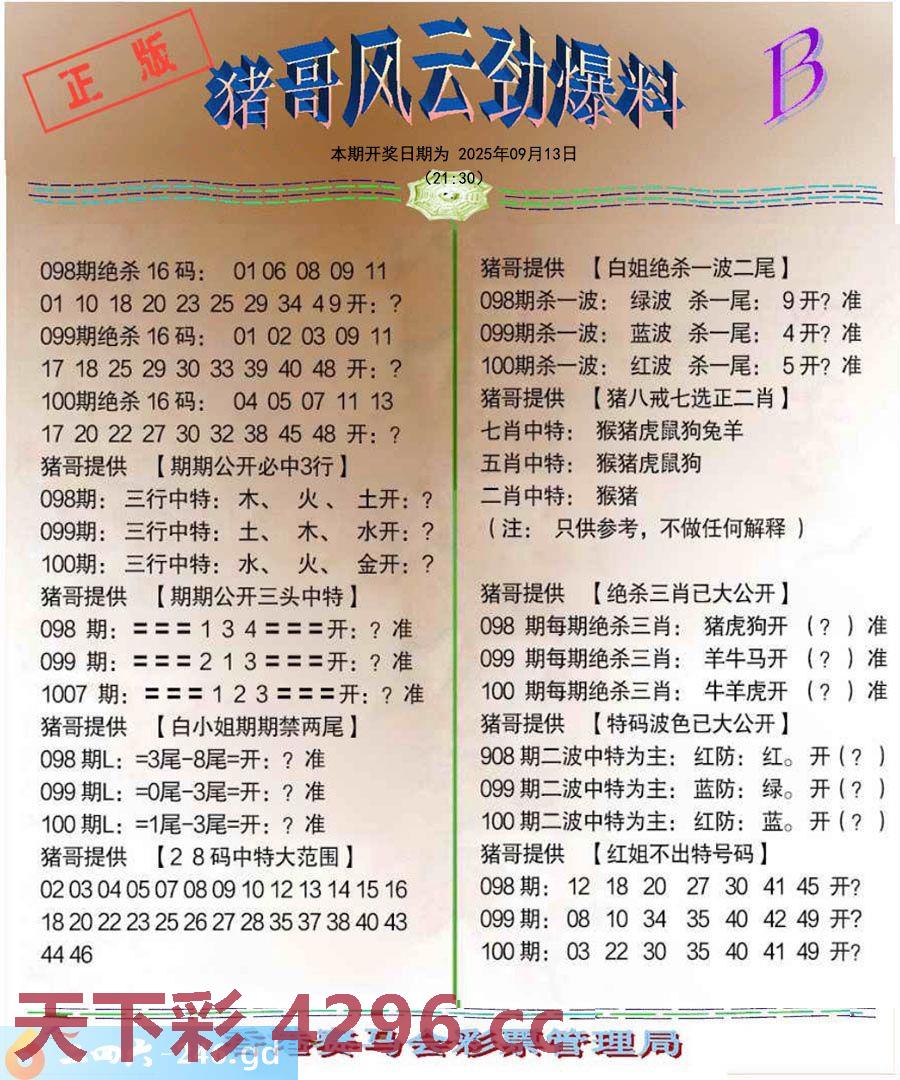 正版
猪哥风云劲爆料
B
本期开奖日期为 2025年09月13日
（21:30）
098期绝杀16码： 01 06 08 09 11
01 10 18 20 23 25 29 34 49开：？
099期绝杀16码： 01 02 03 09 11
17 18 25 29 30 33 39 40 48 开：？
100期绝杀16码： 04 05 07 11 13
17 20 22 27 30 32 38 45 48 开：？
猪哥提供 【期期公开必中3行】
098期：三行中特：木、 火 、 土开：？
099期：三行中特：土、 木、 水开：？
100期：三行中特：水、 火、 金开：？
猪哥提供 【期期公开三头中特】
098 期：＝＝＝１３４＝＝＝开：？准
099 期：＝＝＝２１３＝＝＝开：？准
1007 期：＝＝＝１２３＝＝＝开：？准
猪哥提供 【白小姐期期禁两尾】
098期L：=3尾-8尾=开：？准
099期L：=0尾-3尾=开：？准
100期L：=1尾-3尾=开：？准
猪哥提供 【２８码中特大范围】
02 03 04 05 07 08 09 10 12 13 14 15 16
18 20 22 23 25 26 27 28 35 37 38 40 43
44 46
猪哥提供 【白姐绝杀一波二尾】
098期杀一波： 绿波 杀一尾： 9开？准
099期杀一波： 蓝波 杀一尾： 4开？准
100期杀一波： 红波 杀一尾： 5开？准
猪哥提供 【猪八戒七选正二肖】
七肖中特： 猴猪虎鼠狗兔羊
五肖中特： 猴猪虎鼠狗
二肖中特： 猴猪
（注： 只供参考，不做任何解释 ）
猪哥提供 【绝杀三肖已大公开】
098 期每期绝杀三肖： 猪虎狗开 （？）准
099 期每期绝杀三肖： 羊牛马开 （？）准
100 期每期绝杀三肖： 牛羊虎开 （？）准
猪哥提供 【特码波色已大公开】
908期二波中特为主：红防：红。开（？）
099期二波中特为主：蓝防：绿。开（？）
100期二波中特为主：红防：蓝。开（？）
猪哥提供 【红姐不出特号码】
098期： 12 18 20 27 30 41 45 开?
099期： 08 10 34 35 40 42 49 开?
100期： 03 22 30 35 40 41 49 开?
天下彩 4296.cc
马会彩票管理局